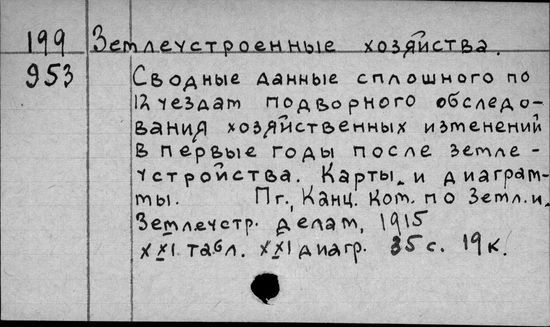 199 Землеустроенные хозяйства.
953 Сводные данные сплошного по
12 уездам подворного обследо-
вания хозяйственных изменений
в первые годы после земле-
устройства. Карты и диаграм-
мы. Пг., Канц. Ком. по Земл. и
Землеустр. делам, 1915
XXI табл. XXI диагр. 35 с. 19 к.